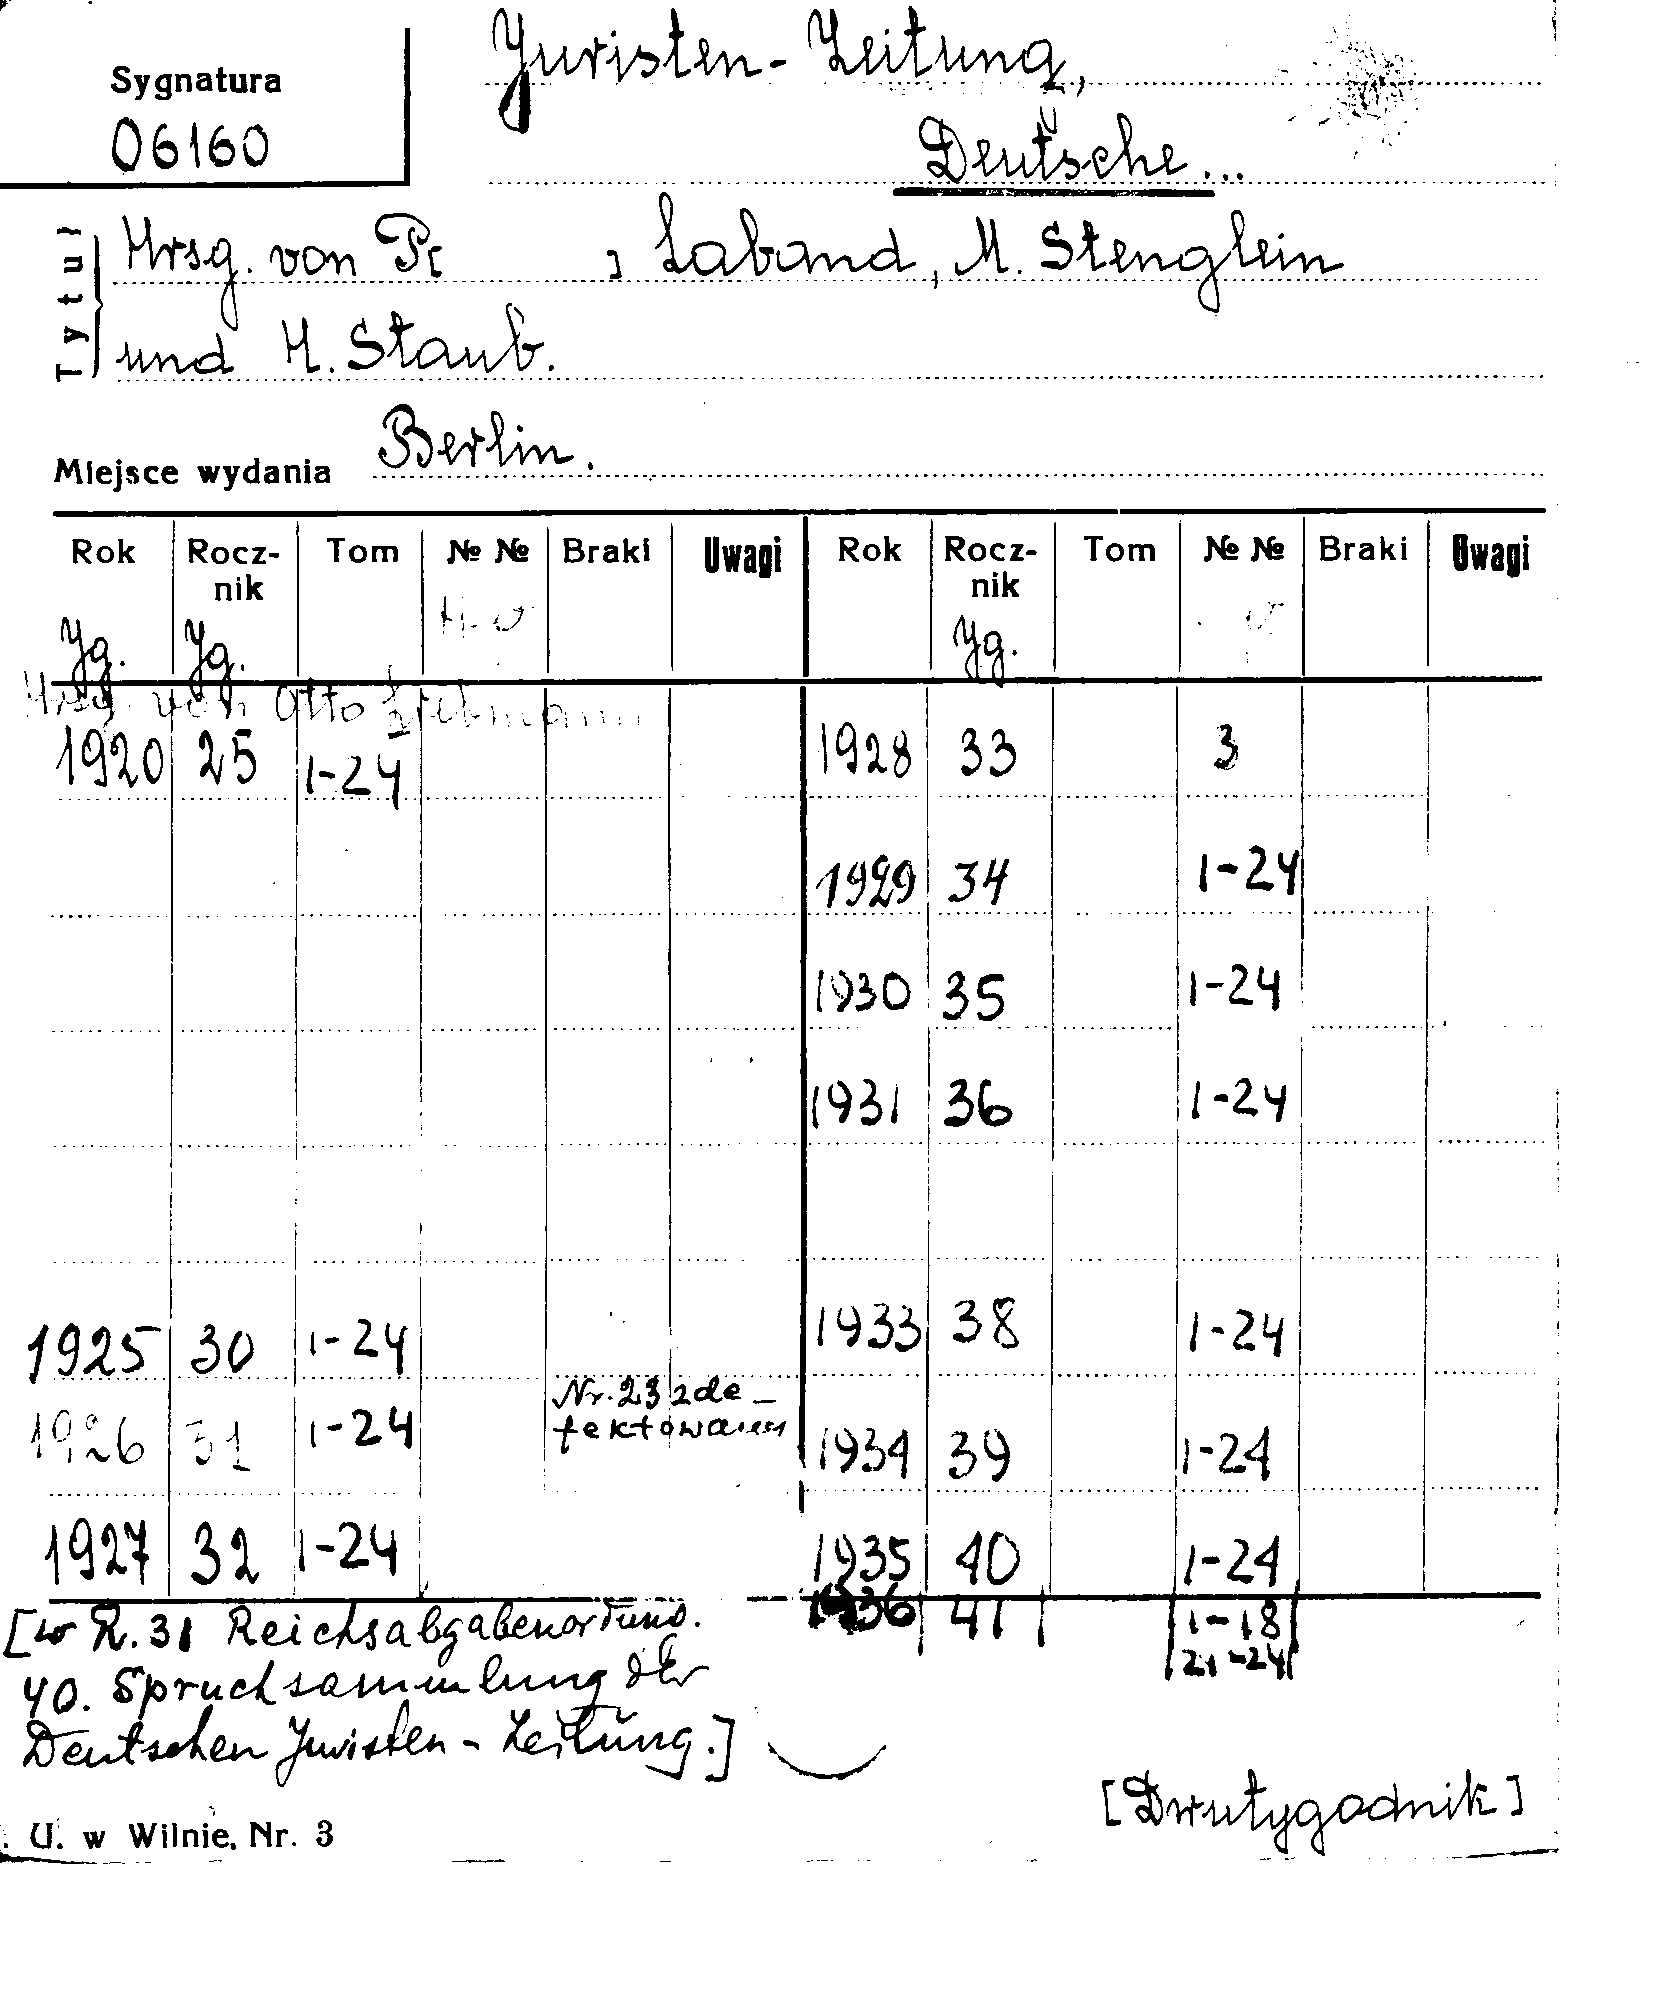 Sygnatura
06160
Juristen-Zeitung,
Deutsche...
Tytuł
Hrsg. von P , Laband, M. Stenglein
und H. Staub.
Miejsce wydania Berlin.
Rok Rocz-nik Tom № № Braki Uwagi Rok Rocz-nik Tom № № Braki Uwagi
Jg. Jg. Jg.
Hrsg. von Otto Liebmann
1920 25 1-24 1928 33 3
1929 34 1-24
1930 35 1-24
1931 36 1-24
1925 30 1-24 1933 38 1-24
1926 31 1-24 Nr. 23 zde-
fektowany 1934 39 1-24
1927 32 1-24 1935 40 1-24
1936 41 1-18
21-24
[w R. 31 Reichsabgabenordung.
40. Spruchsammlung der
Deutschen Juristen-Zeitung.]
[Dwutygodnik]
. U. w Wilnie, Nr. 3